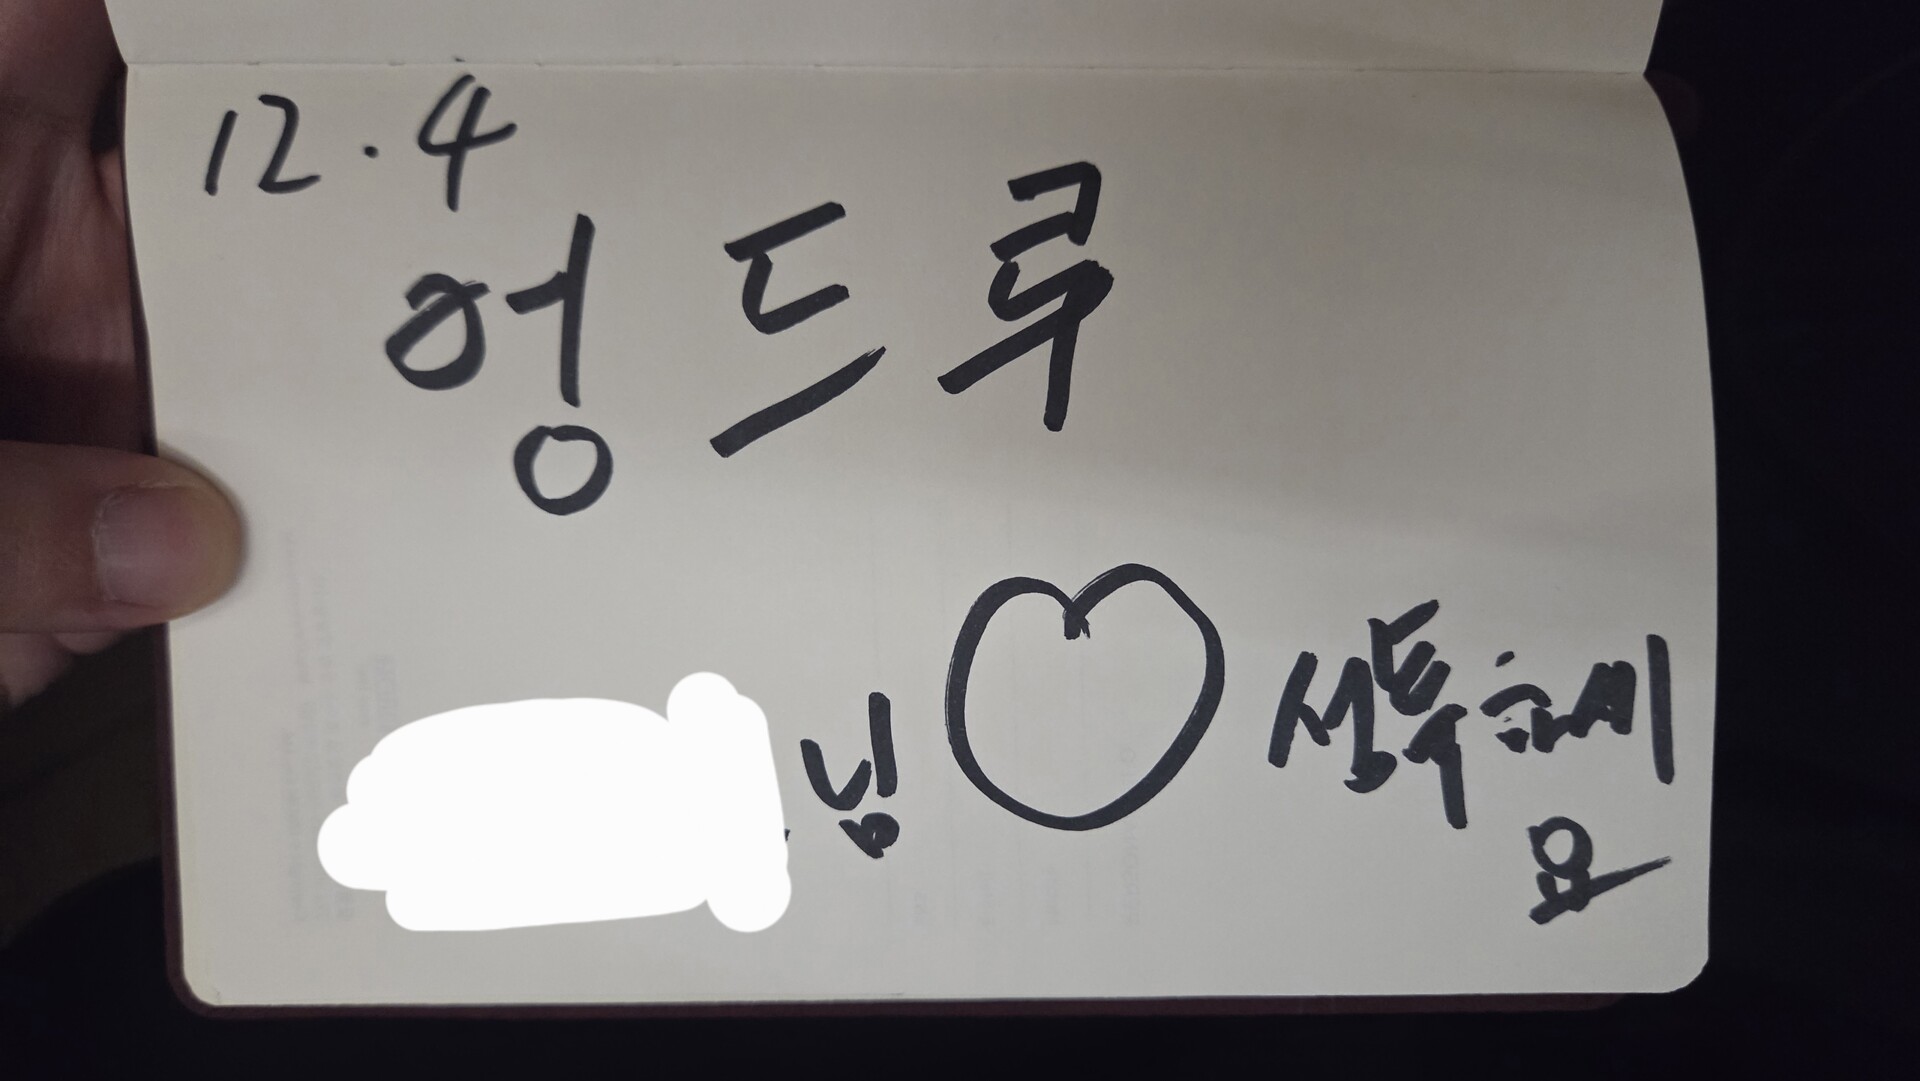 12.4
엉드루
님 ♡ 성투하세
요